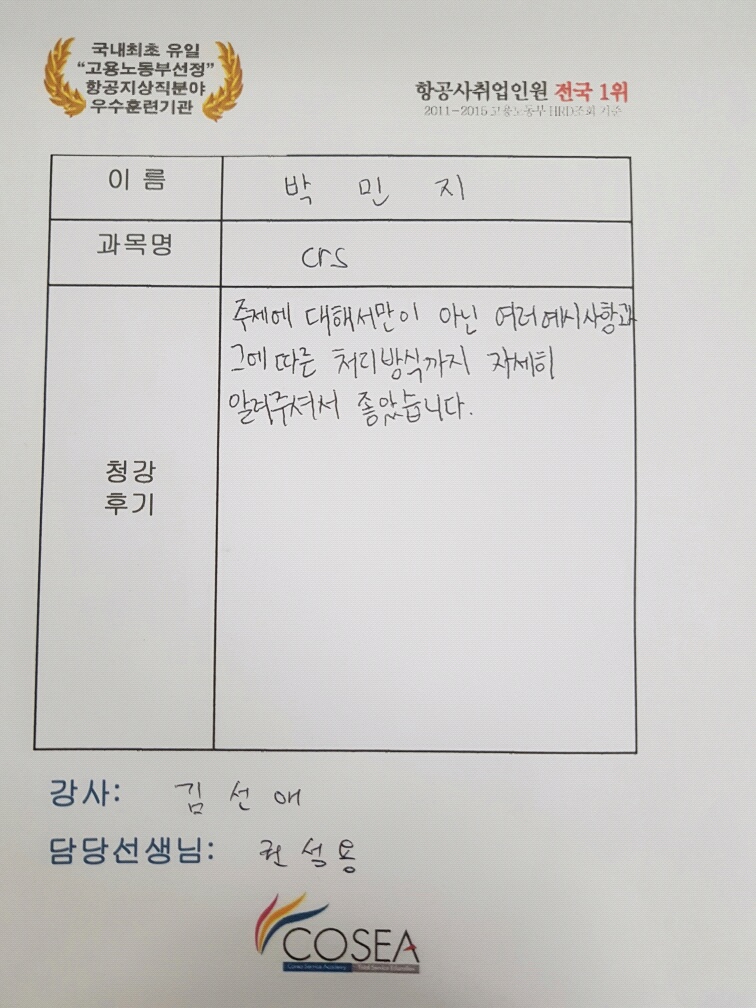 국내최초 유일
“고용노동부선정”
항공지상직분야
우수훈련기관
항공사취업인원 전국 1위
2011-2015 고용노동부 HRD조회 기준
이 름
박 민 지
과목명
crs
주제에 대해서만이 아닌 여러예시사항과
그에 따른 처리방식까지 자세히
알려주셔서 좋았습니다.
청강
후기
강사: 김 선 애
담당선생님: 권 석 용
COSEA
Korea Service Academy Total Service Education